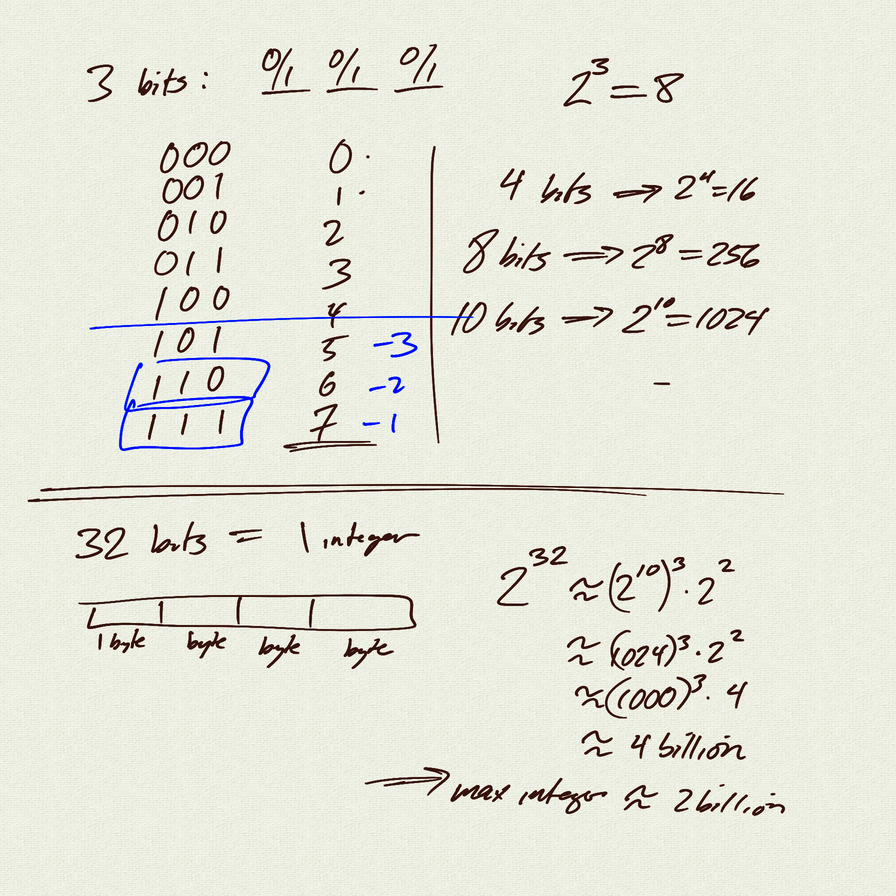 3 bits: 0/1 0/1 0/1
2³=8
000 0.
001 1.
010 2
011 3
100 4
101 5 -3
110 6 -2
111 7 -1
4 bits ⟹ 2⁴=16
8 bits ⟹ 2⁸=256
10 bits ⟹ 2¹⁰=1024
-
32 bits = 1 integer
1 byte byte byte byte
2³² ≈ (2¹⁰)³·2²
≈ (1024)³·2²
≈ (1000)³·4
≈ 4 billion
⟹ max integer ≈ 2 billion